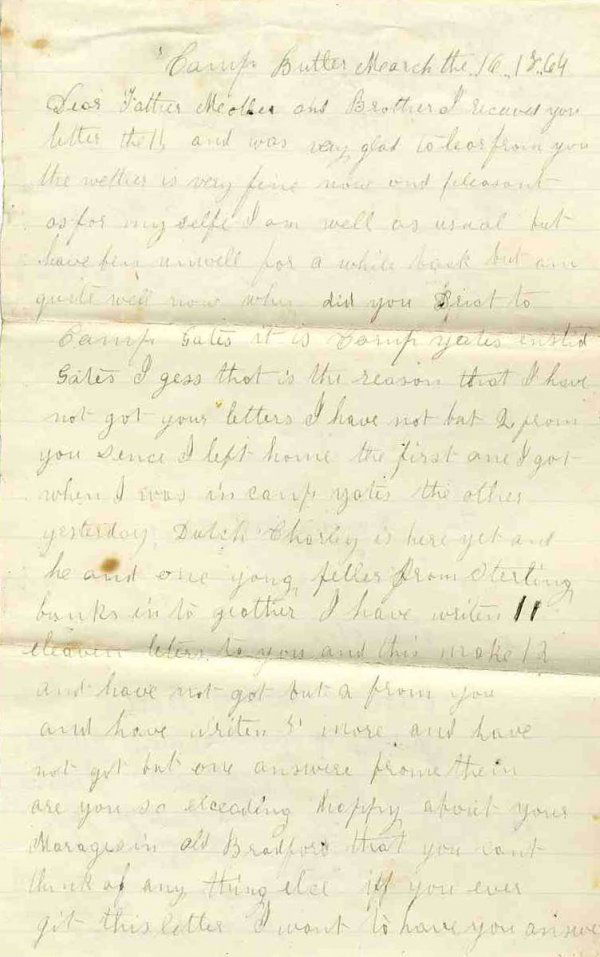 Camp Butler March the 16 1864
Dear Father Mother and Brother I receved you
letter the 15 and was very glad to hear from you
the wether is very fine now and pleasant
as for my selfe I am well as usual but
have ben unwell for a while back but am
quite well now when did you to
Camp Gates it is Camp yates ensted
Gates I gess that is the reason that I have
not got your letters I have not but 2 from
you sence I left home the first one I got
when I was in camp yates the other
yesterday Dutch Charley is here yet and
he and one yong feller from Sterling
bunks in to geather I have writen 11
eleaven leters to you and this make 12
and have not got but 2 from you
and have writen 5 more and have
not got but one answere frome them
are you so exceading happy about your
Marages in old Bradford that you cant
think of any thing else if you ever
git this letter I want to have you answe